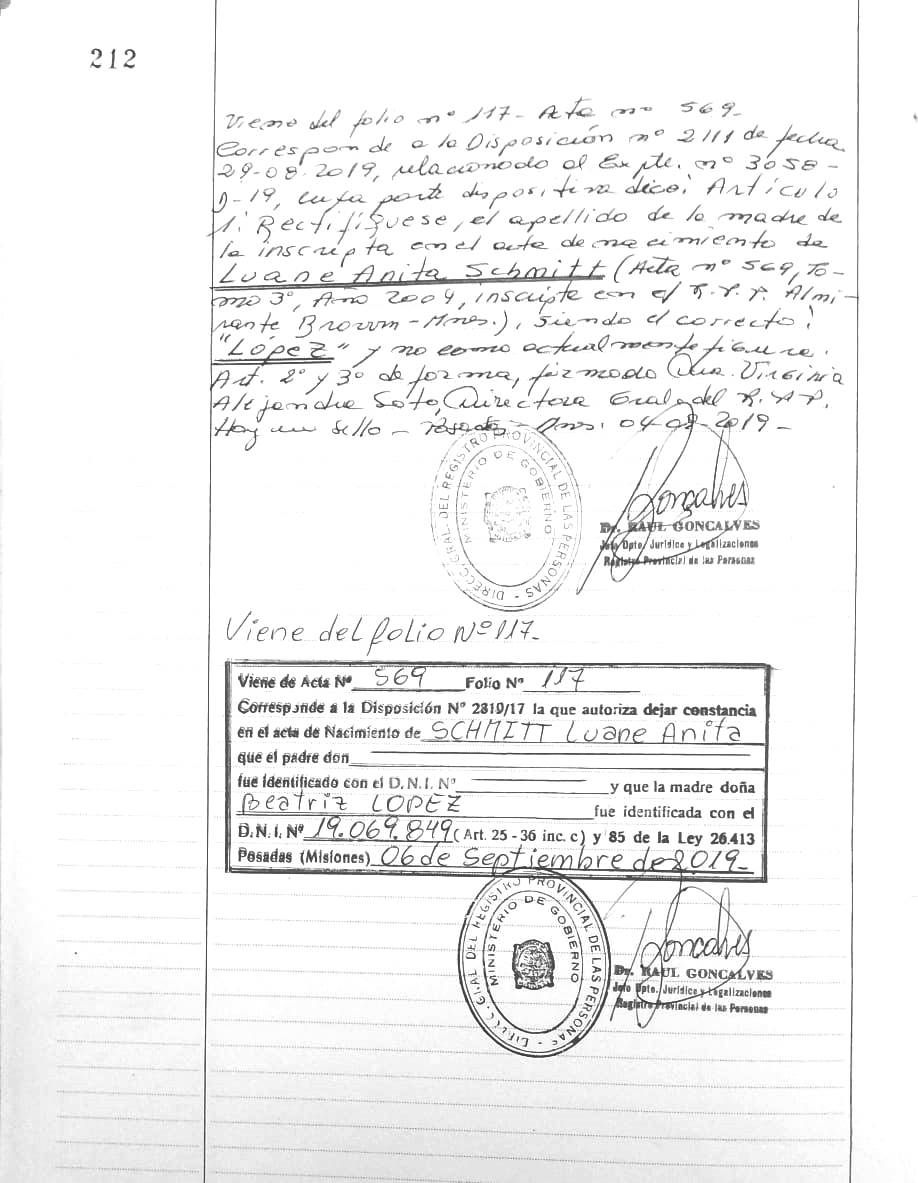 212
Viene del folio nº 117- Acta nº 569-
Corresponde a la Disposición nº 2111 de fecha
29-08-2019, relacionado al Expte. nº 3058-
D-19, cuya parte dispositiva dice: Artículo
1: Rectifíquese, el apellido de la madre de
la inscripta en el acta de nacimiento de
Luane Anita Schmitt (Acta nº 569, To-
mo 3º, Año 2004, inscripta en el R.P.P. Almi-
rante Brown-Mnes.), siendo el correcto:
"López" y no como actualmente figura.
Art. 2º y 3º de forma, firmado Dra. Virginia
Alejandra Soto, Directora Gral. del R.P.P.
Hay un sello - Posadas, Mnes. 04-09-2019-
DIRECC. GRAL. DEL REGISTRO PROVINCIAL DE LAS PERSONAS -
MINISTERIO DE GOBIERNO
Goncalves
Dr. RAUL GONCALVES
Jefe Dpto. Jurídico y Legalizaciones
Registro Provincial de las Personas
Viene del folio Nº 117-
Viene de Acta Nº 569 Folio Nº 117
Corresponde a la Disposición Nº 2819/17 la que autoriza dejar constancia
en el acta de Nacimiento de SCHMITT Luane Anita
que el padre don
fue identificado con el D.N.I. Nº y que la madre doña
Beatriz LOPEZ fue identificada con el
D.N.I. Nº 19.069.849 (Art. 25 - 36 inc. c) y 85 de la Ley 26.413
Posadas (Misiones) 06 de Septiembre de 2019-
DIRECC. GRAL. DEL REGISTRO PROVINCIAL DE LAS PERSONAS -
MINISTERIO DE GOBIERNO
Goncalves
Dr. RAUL GONCALVES
Jefe Dpto. Jurídico y Legalizaciones
Registro Provincial de las Personas